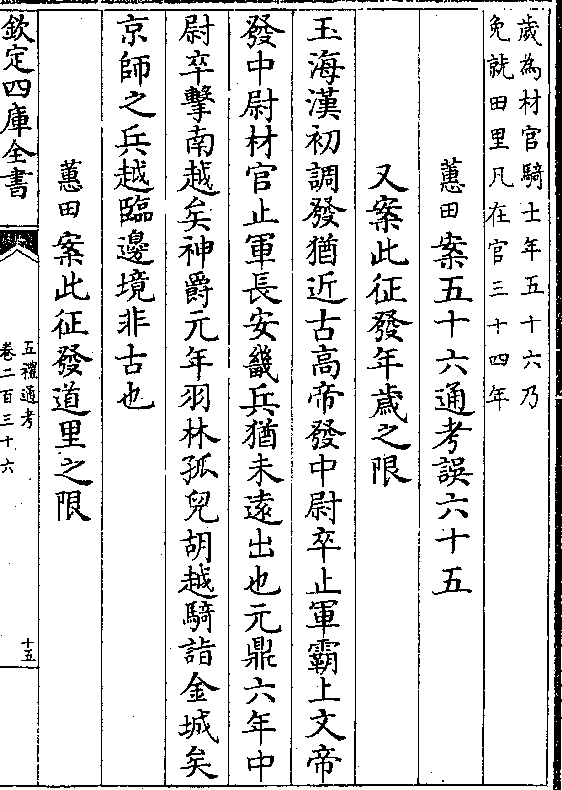 歲為材官騎士年五十六乃
免就田里凡在官三十四年
蕙田案五十六通考誤六十五
又案此征發年歲之限
玉海漢初調發猶近古高帝發中尉卒止軍霸上文帝
發中尉材官止軍長安畿兵猶未遠出也元鼎六年中
尉卒擊南越矣神爵元年羽林孤兒胡越騎詣金城矣
京師之兵越臨邊境非古也
蕙田案此征發道里之限
欽定四庫全書
五禮通考
卷二百三十六
十五